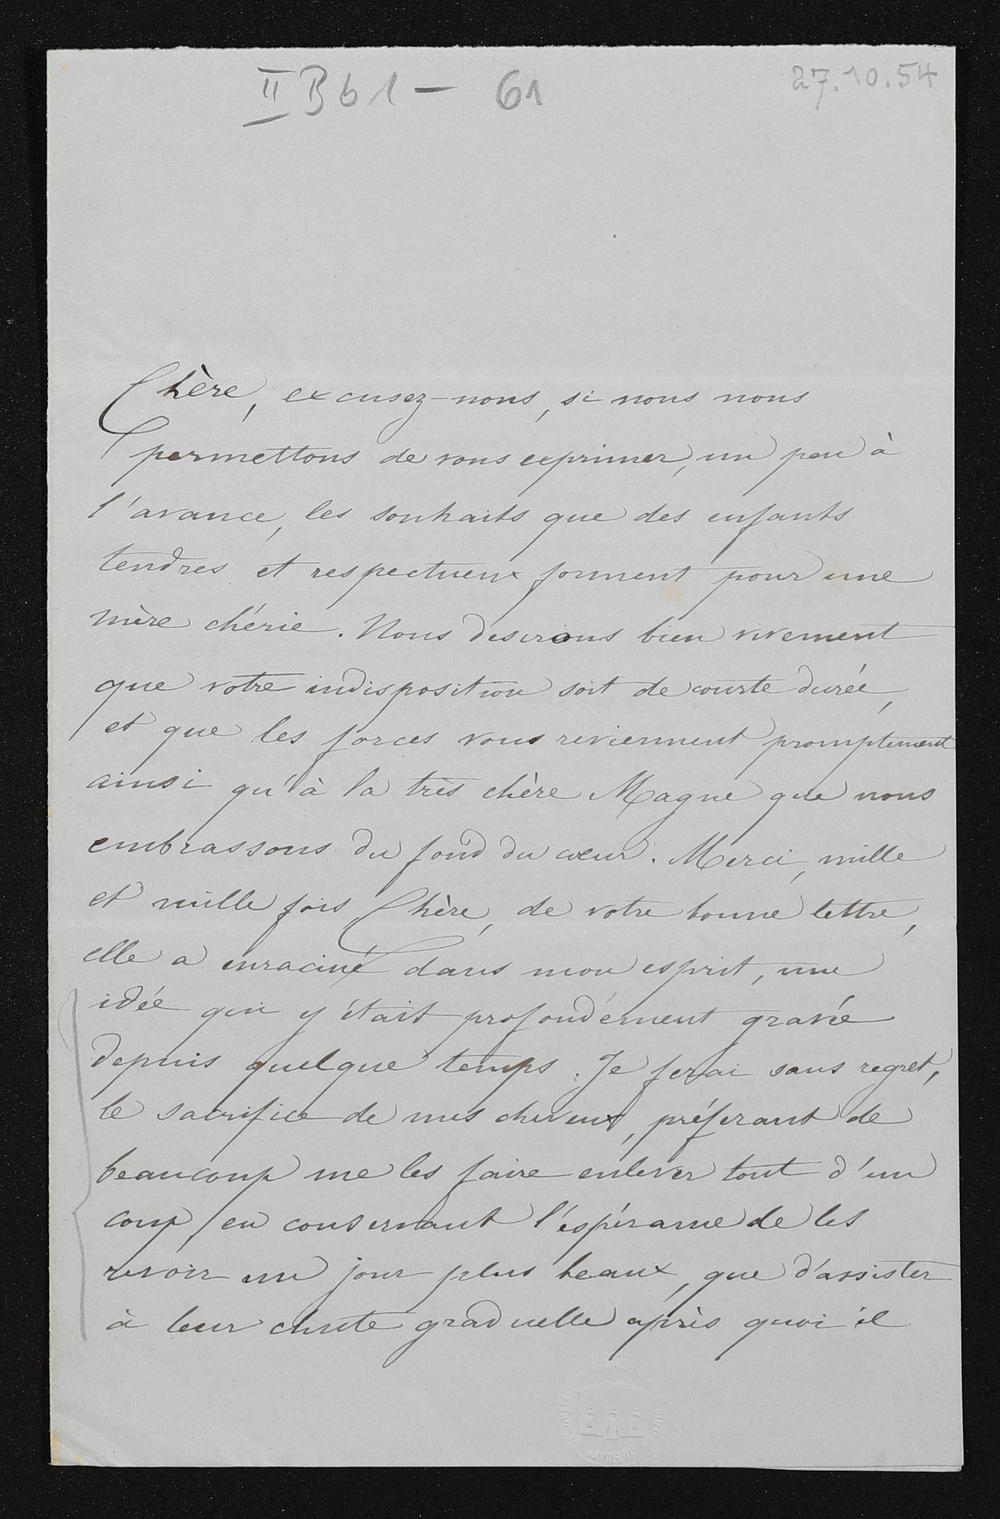 II B b 1 — 61
27.10.54
Chère, excusez-nous, si nous nous
permettons de vous exprimer, un peu à
l'avance, les souhaits que des enfants
tendres et respectueux forment pour une
mère chérie. Nous desirons bien vivement
que votre indisposition soit de courte durée,
et que les forces vous reviennent promptement
ainsi qu'à la très chère Magne que nous
embrassons du fond du cœur. Merci, mille
et mille fois Chère, de votre bonne lettre,
elle a enraciné dans mon esprit, une
idée qui y était profondément gravée
depuis quelque temps. Je ferai sans regret,
le sacrifice de mes cheveux, préferant de
beaucoup me les faire enlever tout d'un
coup en conservant l'espérance de les
revoir un jour plus beaux, que d'assister
à leur chute graduelle après quoi il